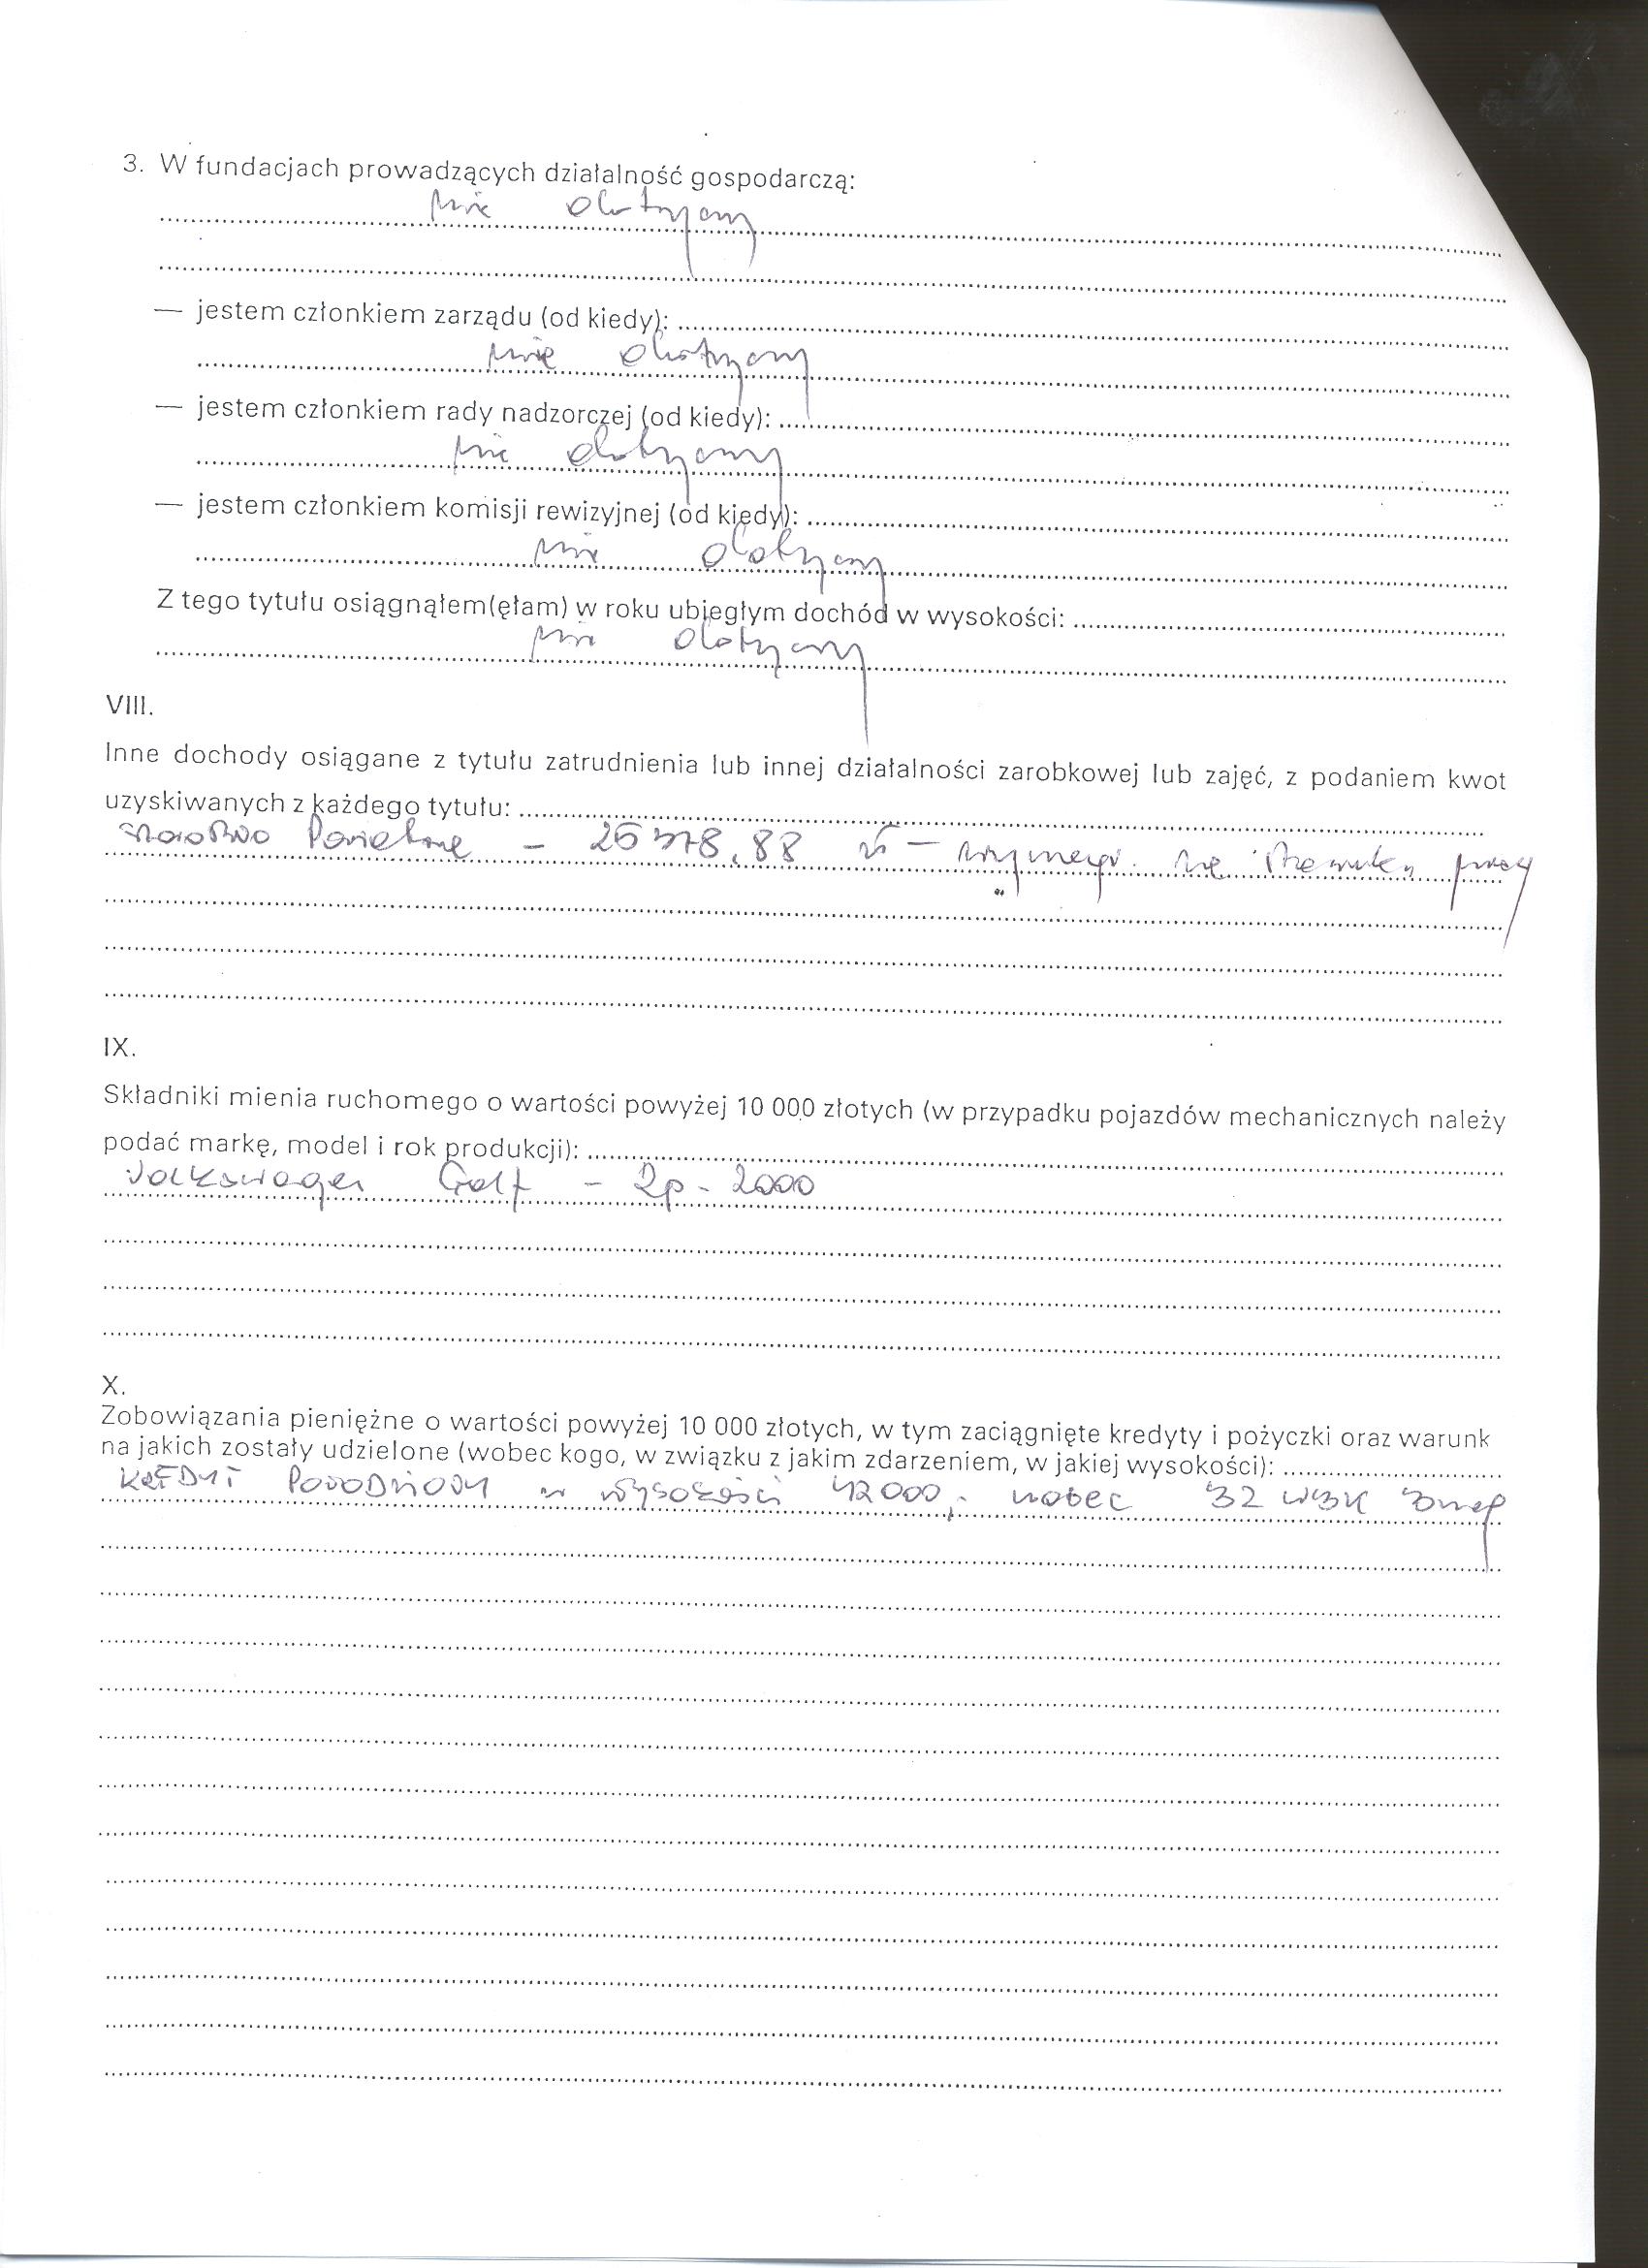 3. W fundacjach prowadzących działalność gospodarczą:
nie dotyczy
— jestem członkiem zarządu (od kiedy):
nie dotyczy
— jestem członkiem rady nadzorczej (od kiedy):
nie dotyczy
— jestem członkiem komisji rewizyjnej (od kiedy):
nie dotyczy
Z tego tytułu osiągnąłem(ęłam) w roku ubiegłym dochód w wysokości:
nie dotyczy
VIII.
Inne dochody osiągane z tytułu zatrudnienia lub innej działalności zarobkowej lub zajęć, z podaniem kwot
uzyskiwanych z każdego tytułu:
Starostwo Powiatowe – zł – pracy
IX.
Składniki mienia ruchomego o wartości powyżej 10 000 złotych (w przypadku pojazdów mechanicznych należy
podać markę, model i rok produkcji):
Volkswagen Golf – Rp - 2000
X.
Zobowiązania pieniężne o wartości powyżej 10 000 złotych, w tym zaciągnięte kredyty i pożyczki oraz warunk
na jakich zostały udzielone (wobec kogo, w związku z jakim zdarzeniem, w jakiej wysokości):
KREDYT w wysokości wobec